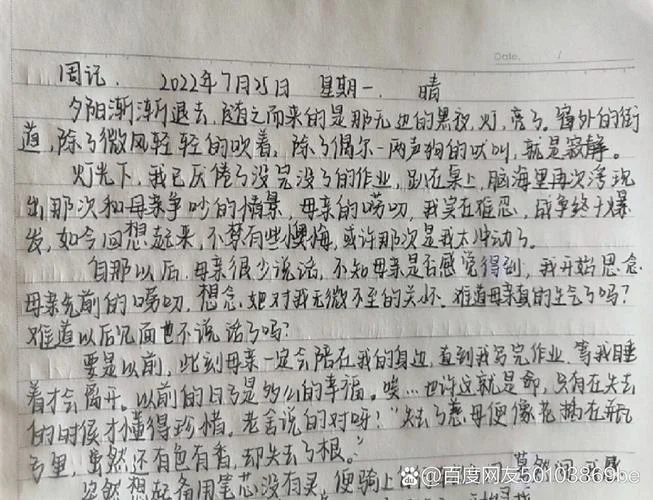 Date. /
周记. 2022年7月25日 星期一. 晴
夕阳渐渐退去,随之而来的是那无边的黑夜,灯,亮了。窗外的街
道,除了微风轻轻的吹着,除了偶尔一两声狗的吠叫,就是寂静。
灯光下,我已厌倦了没完没了的作业,趴在桌上,脑海里再次浮现
出那次和母亲争吵的情景,母亲的唠叨,我实在难忍,战争终于爆
发,如今回想起来,不禁有些懊悔,或许那次是我太冲动了。
自那以后,母亲很少说话,不知母亲是否感觉得到,我开始思念
母亲先前的唠叨,想念她对我无微不至的关怀。难道母亲真的生气了吗?
难道以后见面也不说话了吗?
要是以前,此刻母亲一定会陪在我的身边,直到我写完作业,等我睡
着才会离开。以前的日子是多么的幸福。唉…也许这就是命,只有在失去
的时侯才懂得珍惜。老舍说的对呀!“失了慈母便像花插在瓶
子里,虽然还有色有香,却失去了根。”
突然想起备用笔芯没有买,便骑上
百度网友50103869be